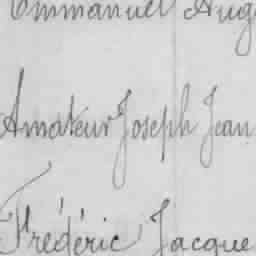 Emmanuel Aug
Amateur Joseph Jean
Frédéric Jacque